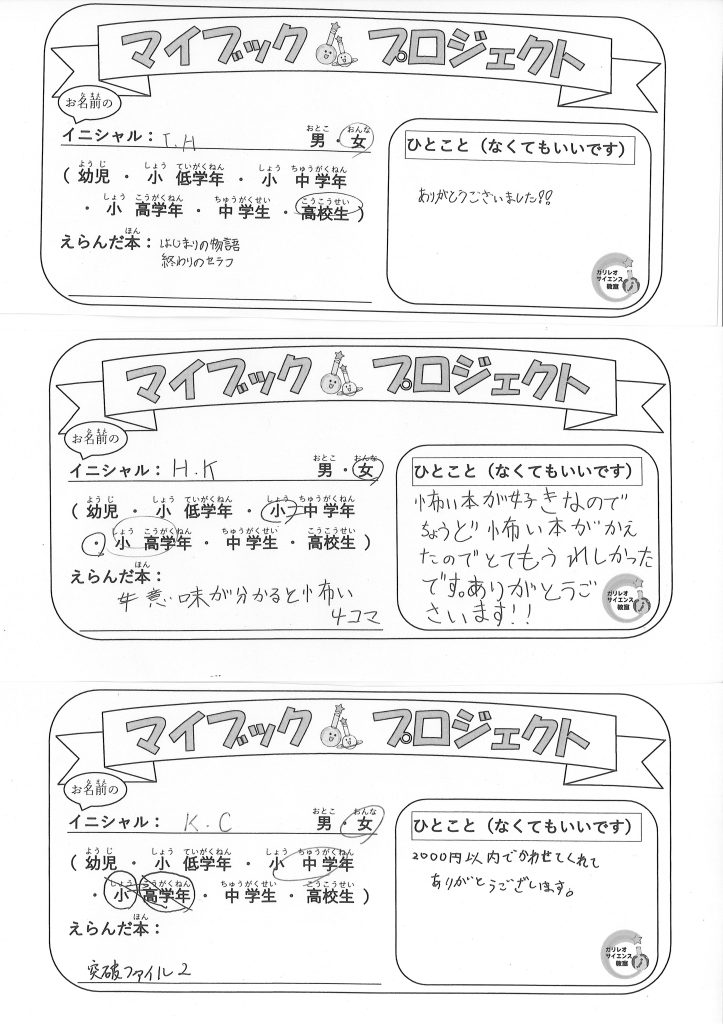 マイブック プロジェクト
お名前の
イニシャル： I.H 男・女
（幼児・小 低学年・小 中学年
・小 高学年・中学生・高校生）
えらんだ本：はじまりの物語
終わりのセラフ
ひとこと（なくてもいいです）
ありがとうございました!!
ガリレオ
サイエンス
教室
マイブック プロジェクト
お名前の
イニシャル： H.K 男・女
（幼児・小 低学年・小 中学年
・小 高学年・中学生・高校生）
えらんだ本：
意味が分かると怖い
4コマ
ひとこと（なくてもいいです）
怖い本が好きなので
ちょうど怖い本がかえ
たのでとてもうれしかった
です。ありがとうご
ざいます!!
ガリレオ
サイエンス
教室
マイブック プロジェクト
お名前の
イニシャル： K.C 男・女
（幼児・小 低学年・小 中学年
・小 高学年・中学生・高校生）
えらんだ本：
突破ファイル2
ひとこと（なくてもいいです）
2000円以内でかわせてくれて
ありがとうございます。
ガリレオ
サイエンス
教室